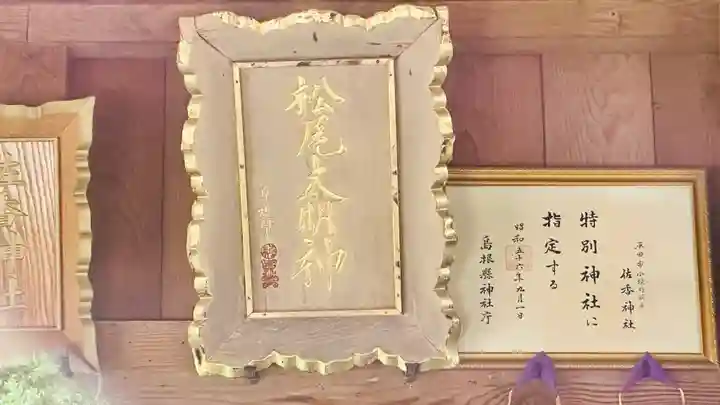 松尾大明神
佐香神社
平田市小境町
佐香神社
特別神社に
指定する
昭和五十六年九月一日
島根縣神社庁